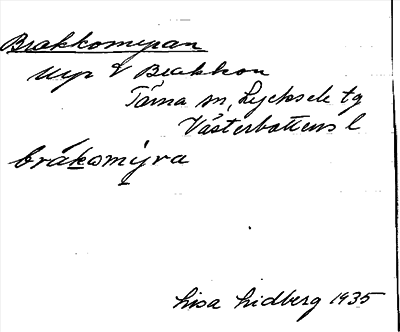 Brakkomyran
myr V Brakkon
Tärna sn, Lycksele tg
Västerbottens l
bråkomyra
Lisa Lidberg 1935